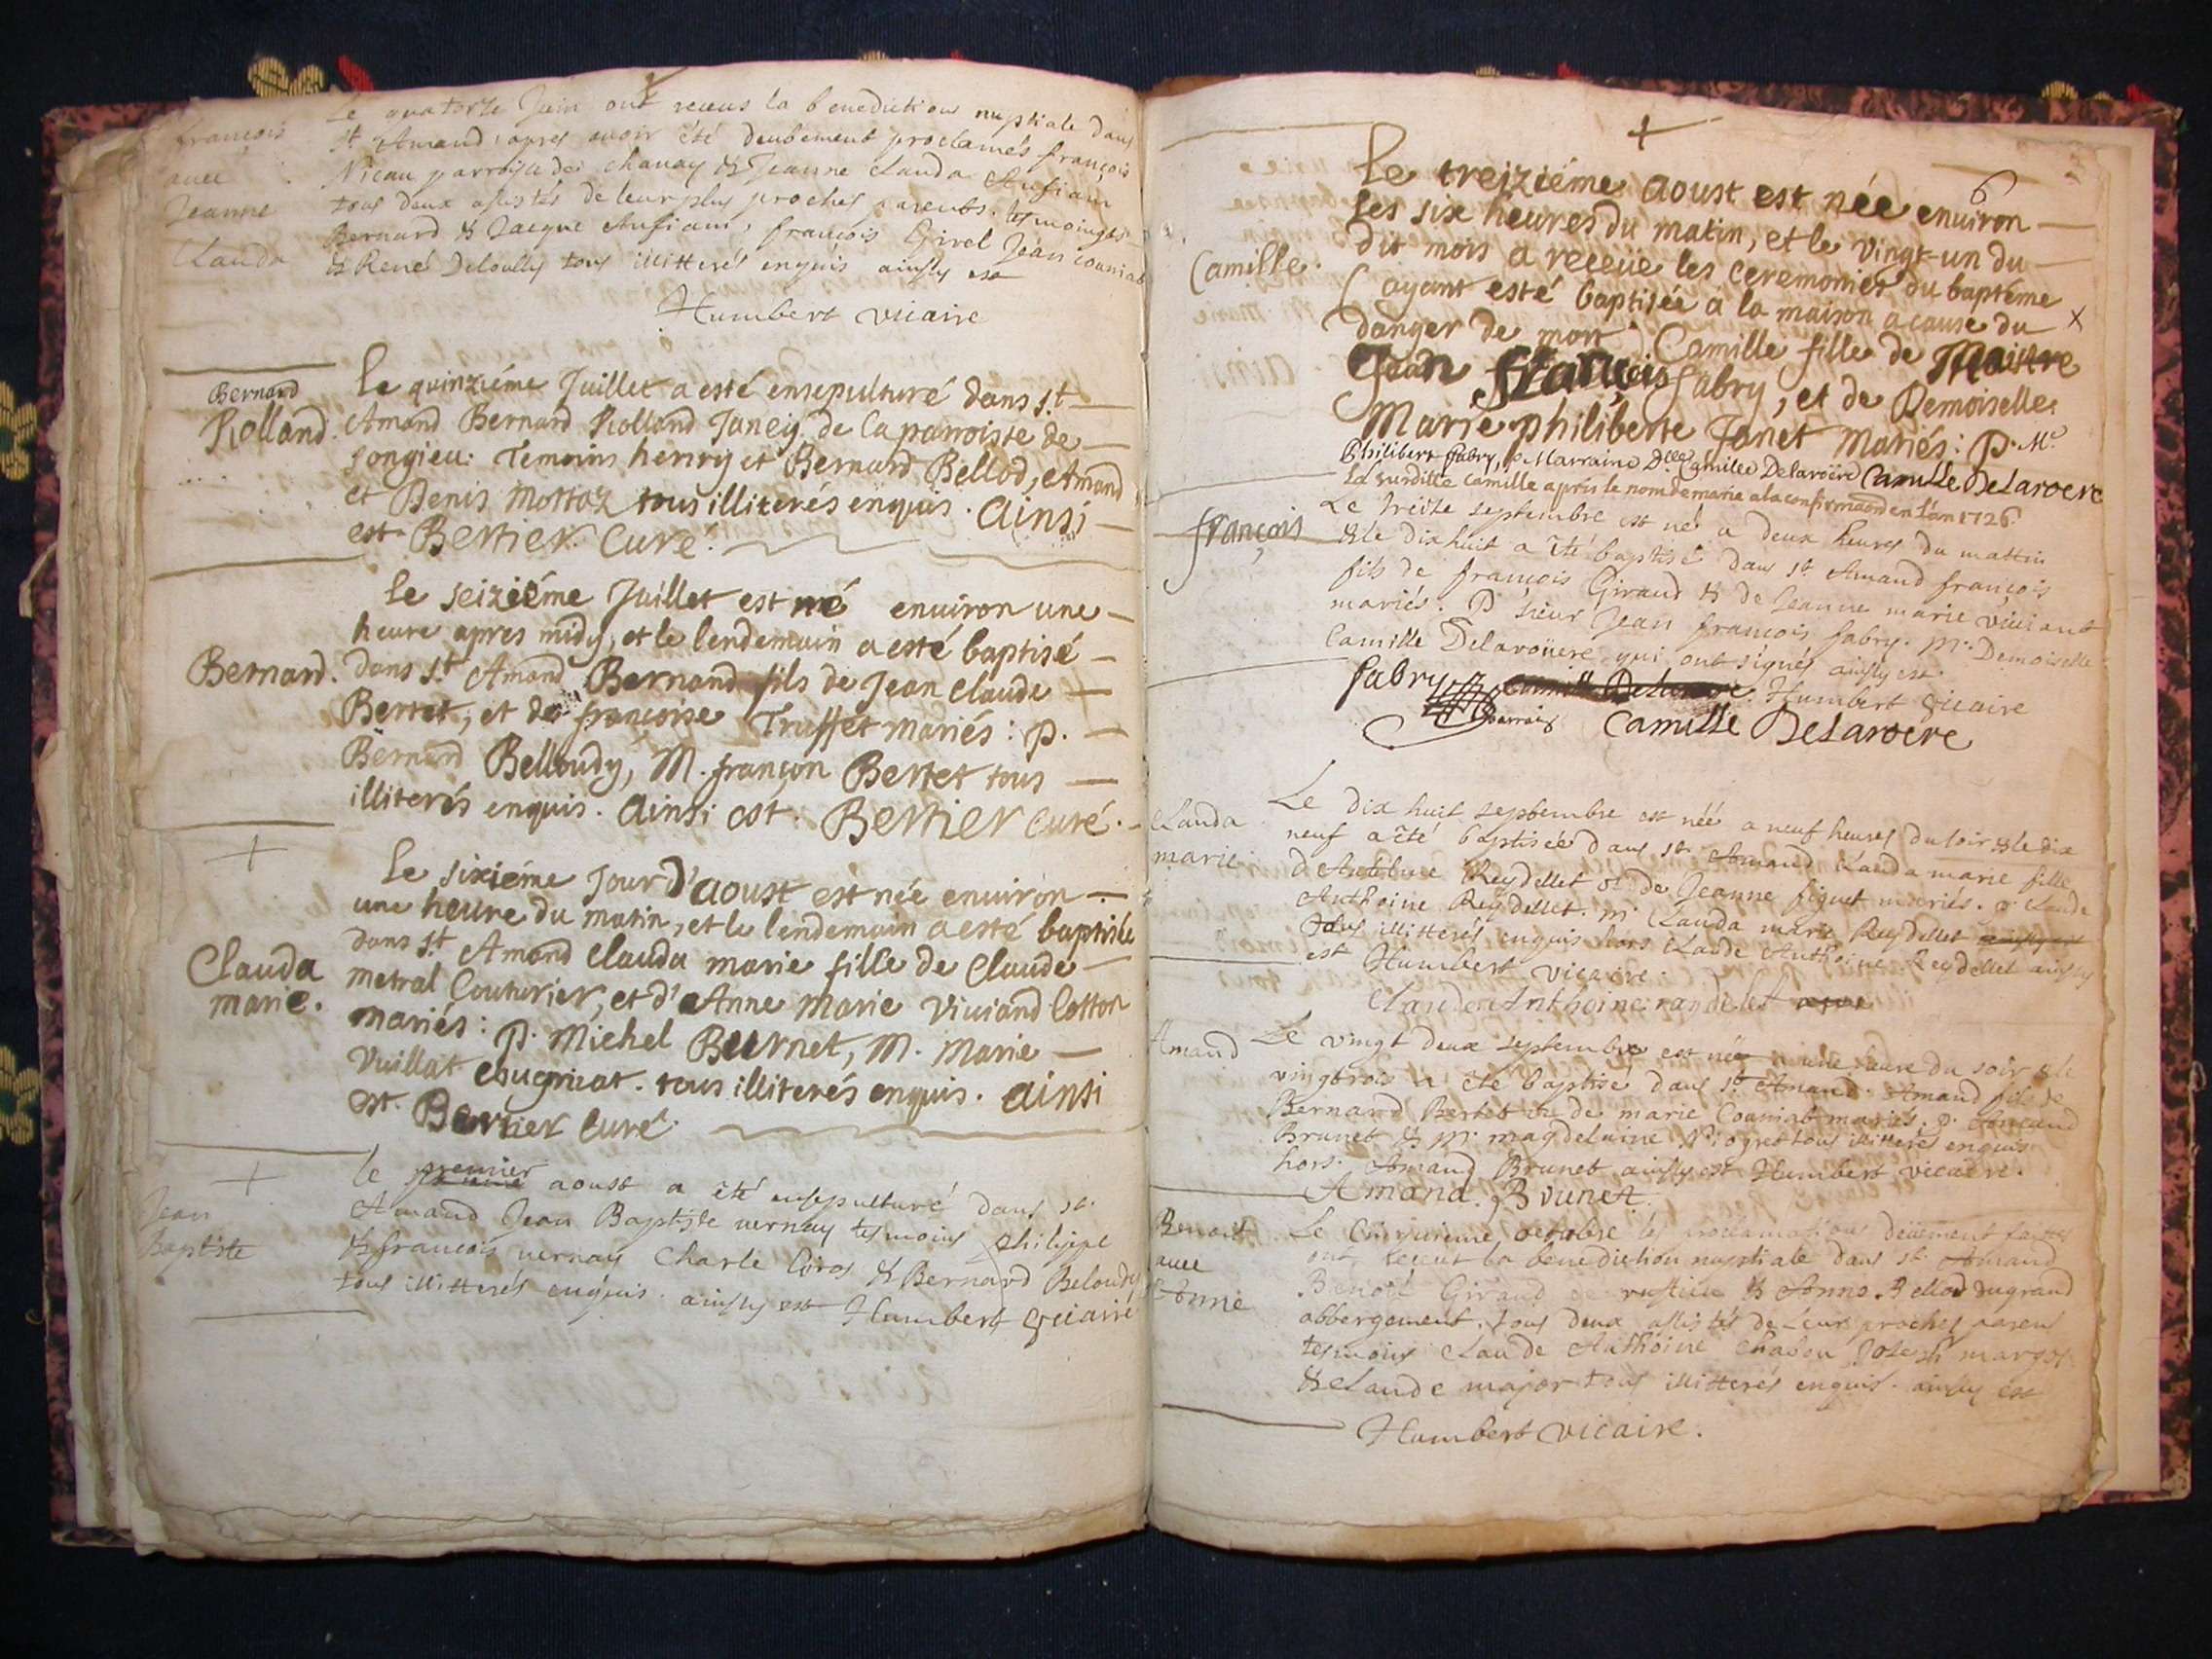 françois
avec
Jeanne
Clauda
Le quatorze Juin ont receus la benediction nuptiale dans
st Amand, apres avoir été deubement proclamés françois
Nicau parroisse de chanay & Jeanne Clauda Aufian
tous deux assistés de leur plus proches parents. tesmoinges
Bernard & Jacque Aufiam, françois Girel Jean couniat
& René Deloully tous illitterés enquis ainsy est
Humbert vicaire
Bernard
Rolland.
Le quinziéme Juillet a esté ensepulturé dans s.t
Amand Bernard Rolland Janeiz de la parroisse de
songieu: Temoins henry et Bernard Bellod, Amand
et Denis Mottaz tous illiterés enquis. Ainsi
est Bertier. Curé.
Bernard.
Le seiziéme Juillet est né environ une
heure apres midy, et le lendemain a esté baptisé
dans s.t Amand Bernard fils de Jean Claude
Bertet, et de françoise Truffet mariés: P.
Bernard Belloudy, M. françon Bertet tous
illiterés enquis. Ainsi est. Bertier curé.
Clauda
marie.
Le sixiéme Jour d'aoust est née environ
une heure du matin, et le lendemain a esté baptisée
dans s.t Amand Clauda marie fille de Claude
metral Couturier, et d'Anne Marie Viviand Cotton
mariés: P. Michel Burnet, M. Marie
Vuillat cougniat. tous illiterés enquis. Ainsi
est. Bertier Curé.
Jean
Baptiste
le premier aoust a été ensepulturé dans st.
Amand Jean Baptiste vernay tesmoins philippe
& françois vernay Charle Coroz & Bernard Beloudy
tous illitterés enquis. ainsy est Humbert vicaire
6
Camille.
Le treiziéme aoust est née environ
les six heures du matin, et le vingt-un du
dit mois a receüe les ceremonies du baptéme
(ayant esté baptisée a la maison a cause du
danger de mort) Camille fille de Maistre
Jean François fabry, et de Demoiselle
Marie philiberte Janet mariés: P. M.e
Philibert fabry, Marraine D.lle Camille Delaroëre Camille DeLaroere
La surditte Camille apris le nom de marie a la confirmaon en l'an 1726.
françois
Le treize septembre est né a deux heures du mattin
& le dix huit a été baptisé dans st Amand françois
fils de françois Giraud & de Jeanne marie viviant
mariés. P. sieur Jean françois fabry. M. Demoiselle
Camille Delaroüere qui ont signés ainsy est.
fabry Humbert vicaire
parrain Camille DeLaroere
Clauda
marie
Le dix huit septembre est née a neuf heures du soir & le dix
neuf a été baptisée dans st Amand Clauda marie fille
d'Antelme Reydellet & de Jeanne figuet mariés. P. Claude
Anthoine Reydellet. M. Clauda marie Reydellet
tous illitterés enquis hors Claude Anthoine Reydellet ainsy
est Humbert vicaire.
Claude Anthoine randelet
Amand
Le vingt deux septembre est né a une heure du soir & le
vingtrois a été baptisé dans st Amand. Amand fils de
Bernard Bertet & de marie Couniat mariés. P. Amand
Brunet & M. magdelaine Niogret tous illitterés enquis
hors. Amand Brunet ainsy est Humbert vicaire.
Amand. Brunet.
Benoit
avec
Anne
Le cinquieme octobre les proclamations deüement faittes
ont receut la benediction nuptiale dans st Amand
Benoit Giraud de ruffieu & Anne Bellod du grand
abbergement. tous deux assistés de leurs proches parens
tesmoins Claude Anthoine chabou Joseph margot
& Claude major tous illitterés enquis. ainsy est
Humbert vicaire.